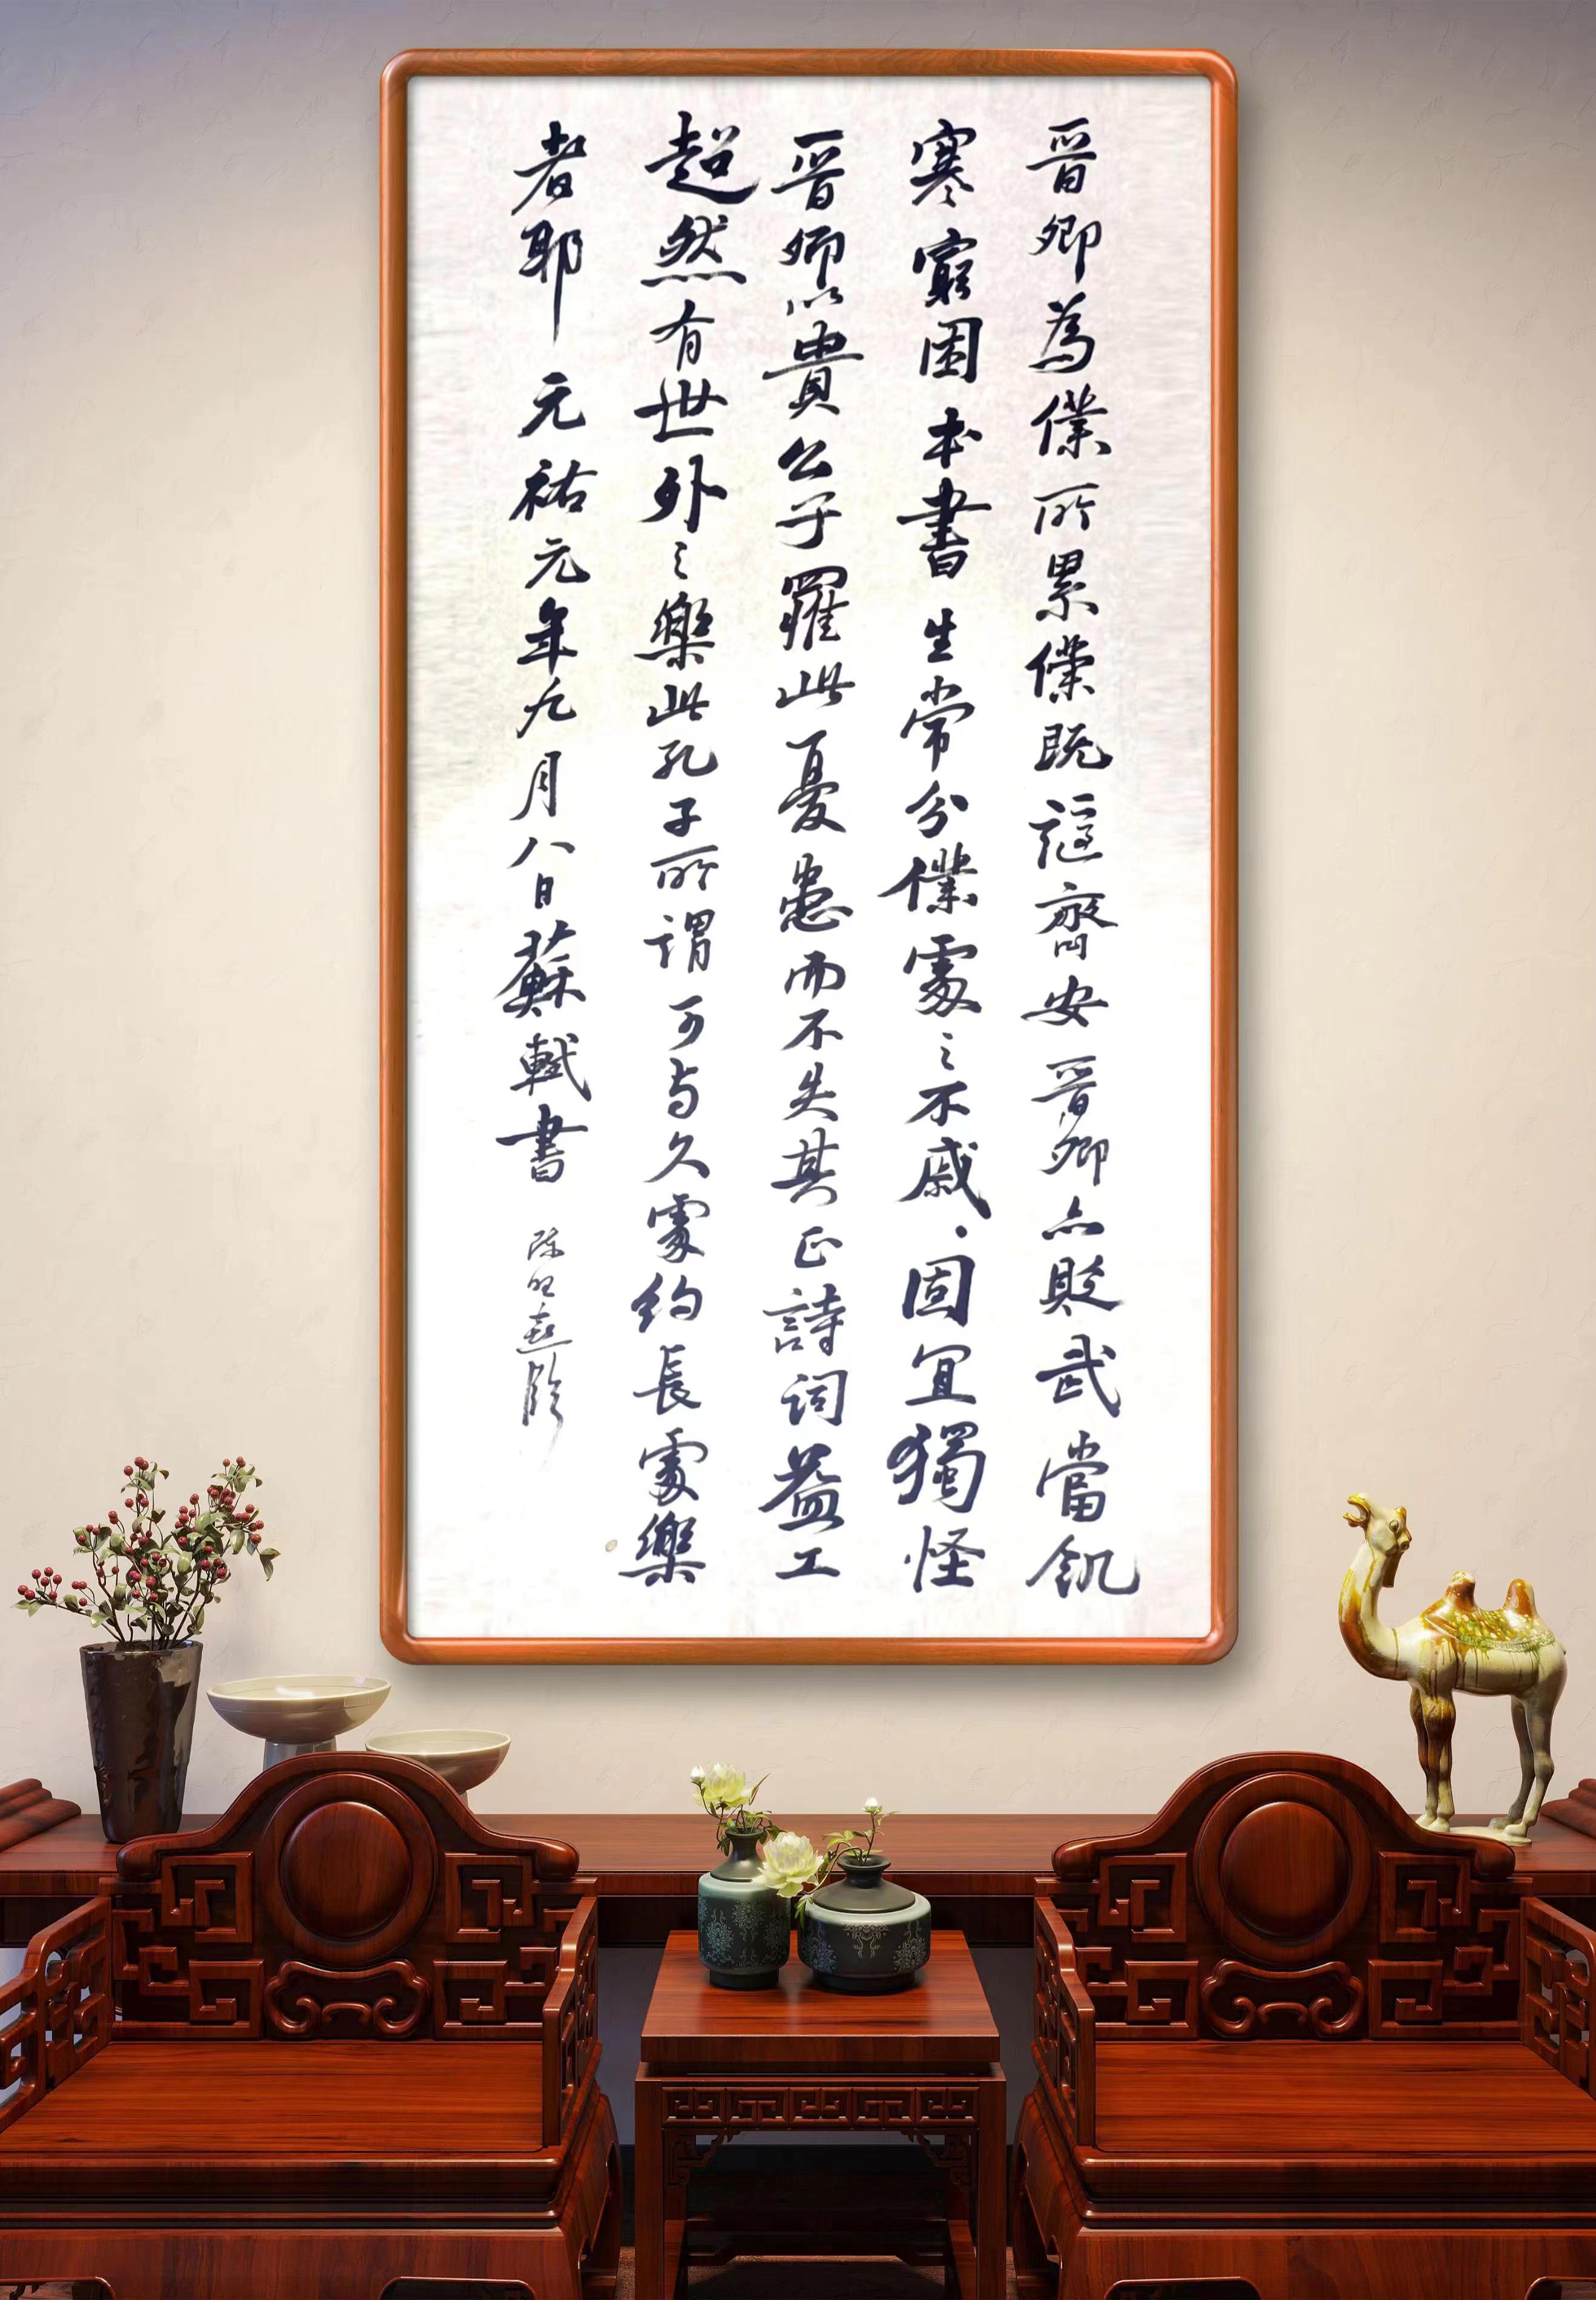 晉卿為僕所累僕既謫齊安晉卿亦貶武當飢
寒窮困本書生常分僕處之不戚戚固宜獨怪
晉卿以貴公子罹此憂患而不失其正詩詞益工
超然有世外之樂此孔子所謂可與久處約長處樂
者耶 元祐元年九月八日蘇軾書